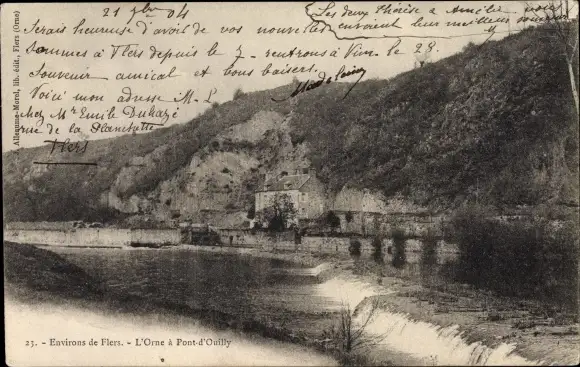 21 7bre 04
Serais heureuse d'avoir de vos nouvelles
Sommes à Flers depuis le 7. rentrons à Vire le 28.
Souvenir amical et bons baisers.
Voici mon adresse M. L
chez Mr Emile Duhazé
rue de la
Flers
Les deux Thérèse & Amélie
envoient leur meilleur
Allequme-Morel, lib. édit., Flers (Orne)
23. - Environs de Flers. - L'Orne à Pont-d'Ouilly